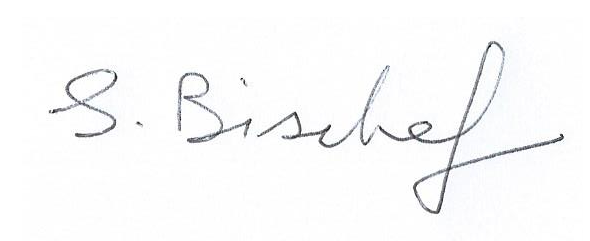 S. Bischof